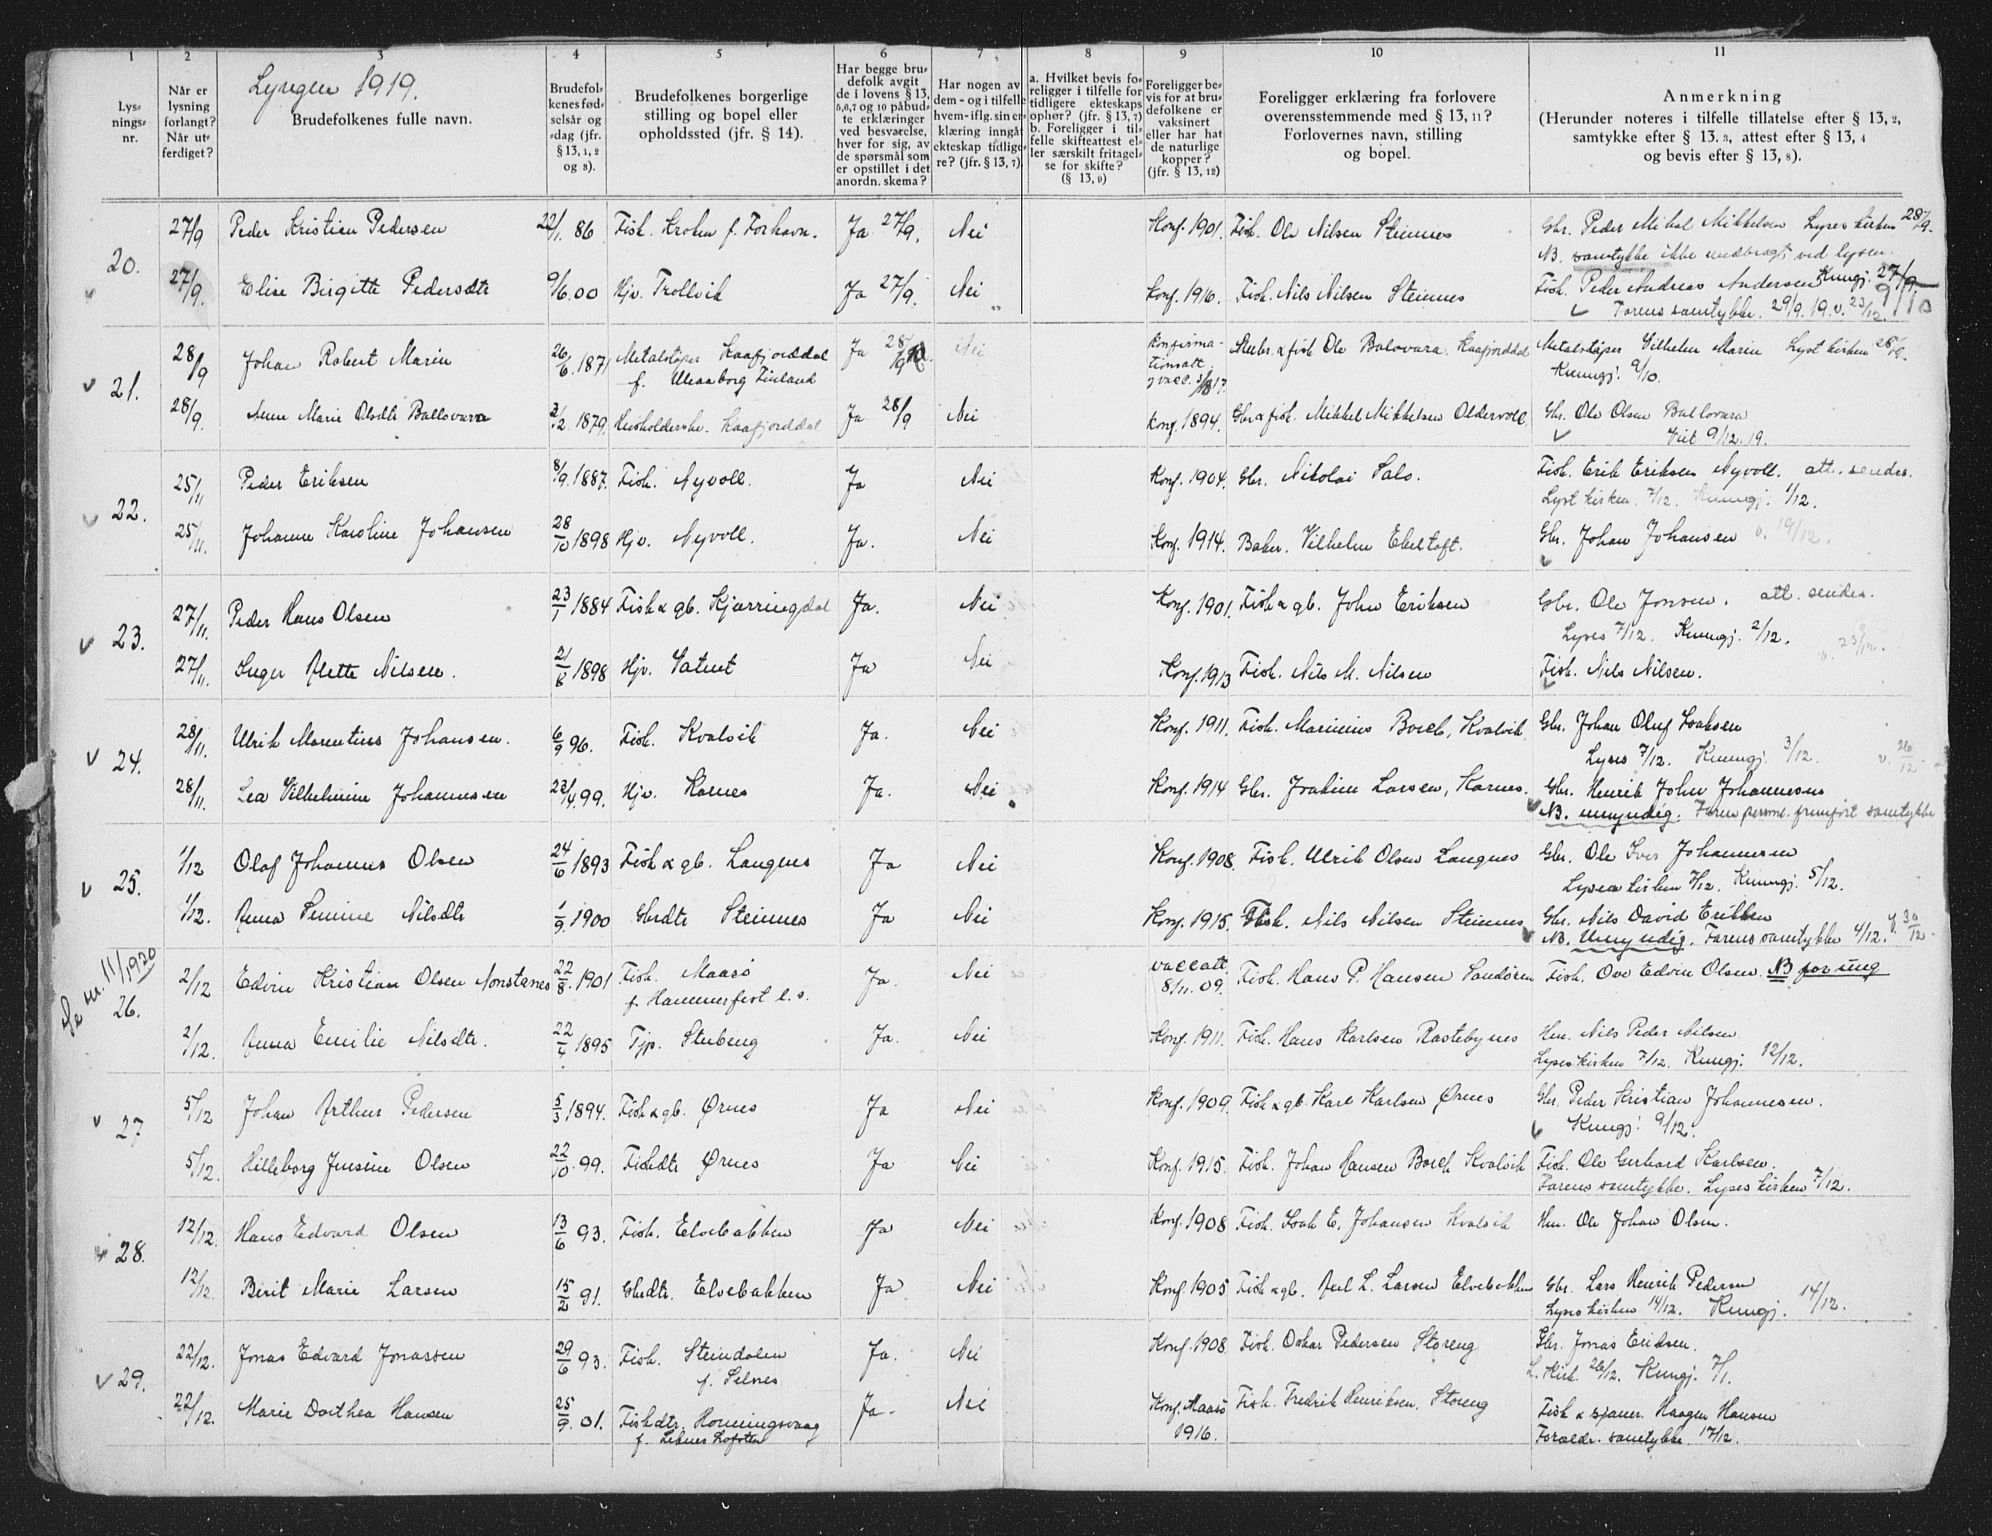 1 2 3 4 5 6 7 8 9 10 11
Lysnings-nr.
Når er lysning forlangt? Når utferdiget?
Lyngen 1919.
Brudefolkenes fulle navn.
Brudefolkenes fødselsår og -dag (jfr. § 13, 1, 2 og 8).
Brudefolkenes borgerlige stilling og bopel eller opholdssted (jfr. § 14).
Har begge brudefolk avgit de i lovens § 13, 5,6,7 og 10 påbudte erklæringer ved besvarelse, hver for sig, av de spørsmål som er opstillet i det anordn. skema?
Har nogen av dem - og i tilfelle hvem - iflg. sin erklæring inngått ekteskap tidligere? (jfr. § 13, 7)
a. Hvilket bevis foreligger i tilfelle for tidligere ekteskaps ophør? (jfr. § 13, 7) b. Foreligger i tilfelle skifteattest eller særskilt fritagelse for skifte? (§ 13, 9)
Foreligger bevis for at brudefolkene er vaksinert eller har hat de naturlige kopper? (jfr. § 13, 12)
Foreligger erklæring fra forlovere overensstemmende med § 13, 11? Forlovernes navn, stilling og bopel.
Anmerkning (Herunder noteres i tilfelle tillatelse efter § 13, 2, samtykke efter § 13. 3, attest efter § 13, 4 og bevis efter § 13, 8).
20.
27/9 Peder Kristian Pedersen 22/1. 86 Fisk. Kroken f. Torhavn. Ja 27/9. Nei Konf. 1901. Fisk. Ole Nilsen Steinnes Gbr. Peder Mikal Mikkelsen Lyses kirken 28/9.
NB. samtykke ikke medbragt ved lysn.
27/9. Elise Birgitte Pedersdtr 9/6.00 Hjv. Trollvik Ja 27/9. Nei Konf. 1916. Fisk. Nils Nilsen Steinnes Fisk. Peder Andreas Andersen Kungj. 27/9.
Farens samtykke. 29/9. 19. v. 23/12.
21.
28/9 Johan Robert Marin 26/6. 1871 Metalstøper Kaafjorddal Ja 28/9 Nei Konfirmationsatt. Stubr. & fisk Ole Balovara. Kaafjorddal Metalstøper Vilhelm Marin Lyst kirken 28/9.
f. Uleaaborg Finland
Kungj. 9/10.
28/9. Anne Marie Olsdtr Ballovara 3/12. 1879. Husholderske. Kaafjorddal Ja 28/9 Nei Konf. 1894. Gbr & fisk. Mikkel Mikkelsen Oldervoll. Gbr. Ole Olsen Ballovara
Viet 9/12. 19.
22.
25/11 Peder Eriksen 8/9. 1887. Fisk. Nyvoll. Ja Nei Konf. 1904. Gbr. Nikolai Salo. Fisk. Erik Eriksen Nyvoll. att. sendes.
Lyst kirken. 7/12. Kungj. 1/12.
25/11. Johanne Karoline Johansen 28/10 1898 Hjv. Nyvoll. Ja. Nei Konf. 1914. Baker. Vilhelm Ebeltoft. Gbr. Johan Johansen v. 19/12.
23.
27/11. Peder Hans Olsen 23/1 1884 Fisk & gb. Kjærringdal Ja. Nei Konf. 1901. Fisk & gb. John Eriksen Gbr. Ole Jonsen. att. sendes.
Lyses 7/12. Kungj. 2/12.
v. 23/12.
27/11. Inger Alette Nilsen. 21/8 1898 Hjv. Ja Nei Konf. 1913 Fisk. Nils M. Nilsen Fisk. Nils Nilsen.
24.
28/11. Ulrik Marentius Johansen. 6/9 96. Fisk. Kvalvik Ja. Nei Konf. 1911. Fisk. Marinius Borch, Kvalvik. Gbr. Johan Oluf Isaksen
Lyses 7/12. Kungj. 3/12. v. 26/12
28/11. Lea Vilhelmine Johannesen 23/4. 99. Hjv. Karnes Ja. Nei Konf. 1914 Gbr. Joakim Larsen, Karnes. Gbr. Henrik John Johannesen
NB. umyndig. Faren person. fremført samtykke
25.
1/12 Olaf Johannes Olsen 24/6 1893 Fisk & gb. Langnes Ja Nei Konf. 1908. Fisk. Ulrik Olsen Langnes Gbr. Ole Iver Johannesen
Lyses kirken 7/12. Kungj. 5/12.
1/12. Anna Pernine Nilsdtr 1/9 1900 Gbrdtr Steinnes Ja Nei Konf. 1915. Fisk. Nils Nilsen Steinnes Gbr. Nils David Eriksen
NB. Umyndig. Farens samtykke 4/12. v. 30/12
Se nr. 11/1920
26.
2/12 Edvin Kristian Olsen Nonstenes 22/8. 1901 Fisk. Maasø Ja. Nei vaccatt. 8/11. 09. Fisk. Hans P. Hansen Sandøren Fisk. Ove Edvin Olsen. NB for ung
f. Hammerfest l. s.
2/12. Anna Emilie Nilsdtr. 22/4 1895 Tjp. Stubeng Ja. Nei Konf. 1911. Fisk. Hans Karlsen Rastebynes Hm. Nils Peder Nilsen
Lyses kirken 7/12. Kungj. 12/12.
27
5/12 Johan Arthur Pedersen 5/3 1894. Fisk & gb. Ørnes Ja Nei Konf. 1909. Fisk & gb. Karl Karlsen Ørnes Gbr. Peder Kristian Johannesen.
Kungj. 9/12.
5/12. Hilleborg Jensine Olsen 22/10. 99. Fiskdtr Ørnes Ja Nei Konf. 1915. Fisk. Johan Hansen Borch Kvalvik Fisk. Ole Gerhard Karlsen.
Farens samtykke. Lyses kirken 7/12.
28.
12/12. Hans Edvard Olsen 13/6 93. Fisk. Elvebakken Ja Nei Konf. 1908 Fisk. Isak E. Johansen Kvalvik Hm. Ole Johan Olsen.
12/12. Berit Marie Larsen 15/2 91. Gbrdtr. Elvebakken Ja Nei Konf. 1905 Fisk & gb. Axel L. Larsen Elvebakken Gbr. Lars Henrik Pedersen
Lyses kirken 14/12. Kungj. 14/12.
29.
22/12. Jonas Edvard Jonassen 29/6 93. Fisk. Steindalen Ja. Nei Konf. 1908 Fisk. Oskar Pedersen Storeng Gbr. Jonas Eriksen.
f. Selnes
L. Kirk. 26/12. Kungj. 7/1.
22/12. Marie Dorthea Hansen 25/9. 01. Fiskdtr. Honningsvaag Ja. Nei Konf. Maasø 1916. Fisk. Fredrik Henriksen, Storeng Fisk & sjauer. Haagen Hansen
Foreldr. samtykke. 17/12.